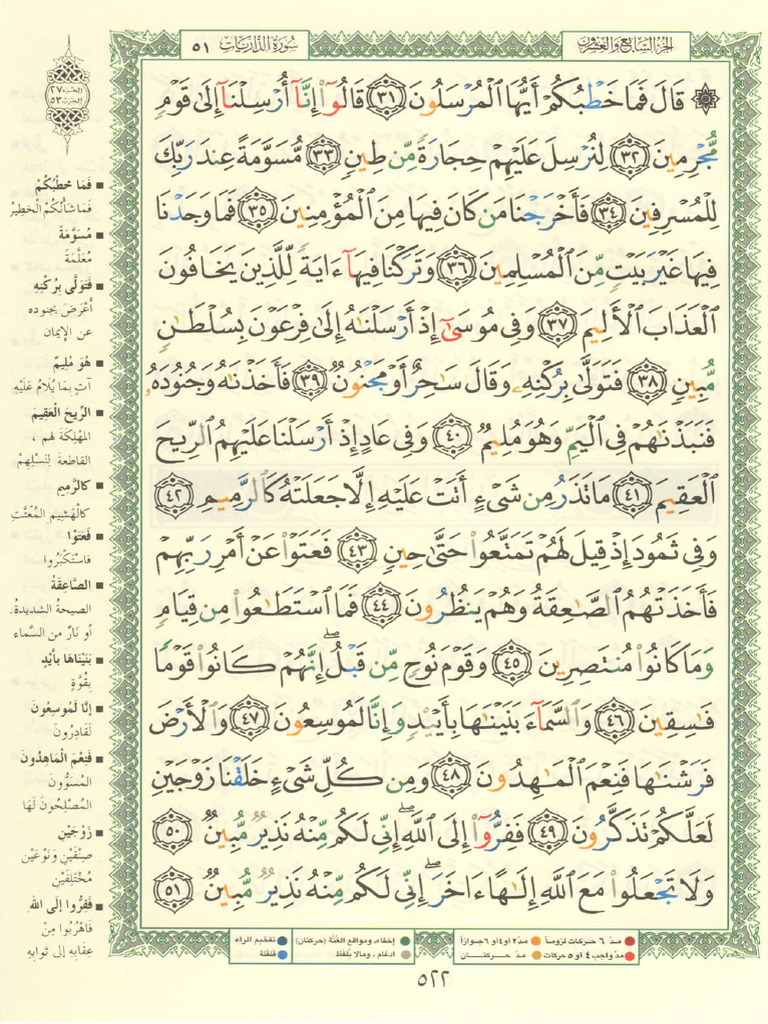 الجزء السابع والعشرون
سورة الذاريات ٥١
۞ قَالَ فَمَا خَطْبُكُمْ أَيُّهَا ٱلْمُرْسَلُونَ ٣١ قَالُوٓا۟ إِنَّآ أُرْسِلْنَآ إِلَىٰ قَوْمٍ
مُّجْرِمِينَ ٣٢ لِنُرْسِلَ عَلَيْهِمْ حِجَارَةً مِّن طِينٍ ٣٣ مُّسَوَّمَةً عِندَ رَبِّكَ
لِلْمُسْرِفِينَ ٣٤ فَأَخْرَجْنَا مَن كَانَ فِيهَا مِنَ ٱلْمُؤْمِنِينَ ٣٥ فَمَا وَجَدْنَا
فِيهَا غَيْرَ بَيْتٍ مِّنَ ٱلْمُسْلِمِينَ ٣٦ وَتَرَكْنَا فِيهَآ ءَايَةً لِّلَّذِينَ يَخَافُونَ
ٱلْعَذَابَ ٱلْأَلِيمَ ٣٧ وَفِى مُوسَىٰٓ إِذْ أَرْسَلْنَٰهُ إِلَىٰ فِرْعَوْنَ بِسُلْطَٰنٍ
مُّبِينٍ ٣٨ فَتَوَلَّىٰ بِرُكْنِهِۦ وَقَالَ سَٰحِرٌ أَوْ مَجْنُونٌ ٣٩ فَأَخَذْنَٰهُ وَجُنُودَهُۥ
فَنَبَذْنَٰهُمْ فِى ٱلْيَمِّ وَهُوَ مُلِيمٌ ٤٠ وَفِى عَادٍ إِذْ أَرْسَلْنَا عَلَيْهِمُ ٱلرِّيحَ
ٱلْعَقِيمَ ٤١ مَا تَذَرُ مِن شَىْءٍ أَتَتْ عَلَيْهِ إِلَّا جَعَلَتْهُ كَٱلرَّمِيمِ ٤٢
وَفِى ثَمُودَ إِذْ قِيلَ لَهُمْ تَمَتَّعُوا۟ حَتَّىٰ حِينٍ ٤٣ فَعَتَوْا۟ عَنْ أَمْرِ رَبِّهِمْ
فَأَخَذَتْهُمُ ٱلصَّٰعِقَةُ وَهُمْ يَنظُرُونَ ٤٤ فَمَا ٱسْتَطَٰعُوا۟ مِن قِيَامٍ
وَمَا كَانُوا۟ مُنتَصِرِينَ ٤٥ وَقَوْمَ نُوحٍ مِّن قَبْلُ ۖ إِنَّهُمْ كَانُوا۟ قَوْمًا
فَٰسِقِينَ ٤٦ وَٱلسَّمَآءَ بَنَيْنَٰهَا بِأَيْي۟دٍ وَإِنَّا لَمُوسِعُونَ ٤٧ وَٱلْأَرْضَ
فَرَشْنَٰهَا فَنِعْمَ ٱلْمَٰهِدُونَ ٤٨ وَمِن كُلِّ شَىْءٍ خَلَقْنَا زَوْجَيْنِ
لَعَلَّكُمْ تَذَكَّرُونَ ٤٩ فَفِرُّوٓا۟ إِلَى ٱللَّهِ ۖ إِنِّى لَكُم مِّنْهُ نَذِيرٌ مُّبِينٌ ٥٠
وَلَا تَجْعَلُوا۟ مَعَ ٱللَّهِ إِلَٰهًا ءَاخَرَ ۖ إِنِّى لَكُم مِّنْهُ نَذِيرٌ مُّبِينٌ ٥١
الحزب ٥٣
■ فَمَا خَطْبُكُمْ
فَمَا شَأنُكُمْ الْخَطِيرُ
■ مُسَوَّمَةً
مُعَلَّمَةً
■ فَتَوَلَّى بِرُكْنِهِ
أَعْرَضَ بِجنودِه
عن الإيمان
■ هُوَ مُلِيمٌ
آتٍ بمَا يُلامُ عَلَيْهِ
■ الرِّيحَ الْعَقِيمَ
المُهْلِكَةَ لهم ،
القاطعةَ لِنَسْلِهِمْ
■ كالرَّمِيمِ
كالْهَشِيمِ المُفَتَّتِ
■ فَعَتَوْا
فاسْتَكْبَرُوا
■ الصَّاعِقَةُ
الصيحةُ الشديدةُ.
أو نارٌ من السَّماء
■ بَنَيْنَاهَا بأَيْدٍ
بِقُوَّةٍ
■ إنَّا لَمُوسِعُونَ
لَقَادِرُونَ
■ فَنِعْمَ الْمَاهِدُونَ
المُسَوُّونَ
المُصْلِحُونَ لَهَا
■ زَوْجَيْنِ
صِنْفَيْنِ وَنَوْعَيْنِ
مُخْتَلِفَيْنِ
■ فَفِرُّوا إلَى اللهِ
فَاهْرُبُوا مِنْ
عِقابِهِ إلى ثوابِهِ
مدّ ٦ حركات لزوماً
مدّ ٢ أو ٤ أو ٦ جوازاً
مدّ واجب ٤ أو ٥ حركات
مدّ حركتان
إخفاء، ومواقع الغُنَّة (حركتان)
ادغام ، ومالا يُلفَظ
تفخيم الراء
قلقلة
٥٢٢